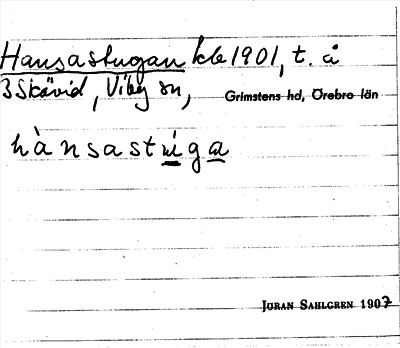 Hansastugan kle 1901, t. å
3 Skävid, Viby sn, Grimstens hd, Örebro län
hànsastúga
JÖRAN SAHLGREN 1907